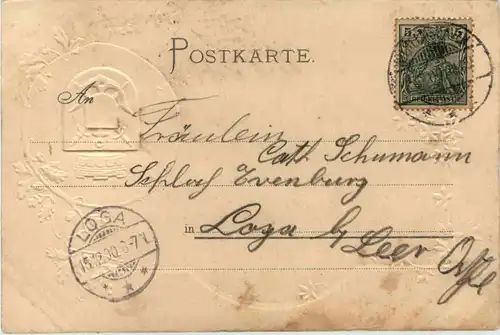 POSTKARTE.
5 5
An Fräulein
Cath Schumann
Schloß Evenburg
in Loga b/
Leer Ostfr
LOGA
15.12.00.6-7N.
* * *